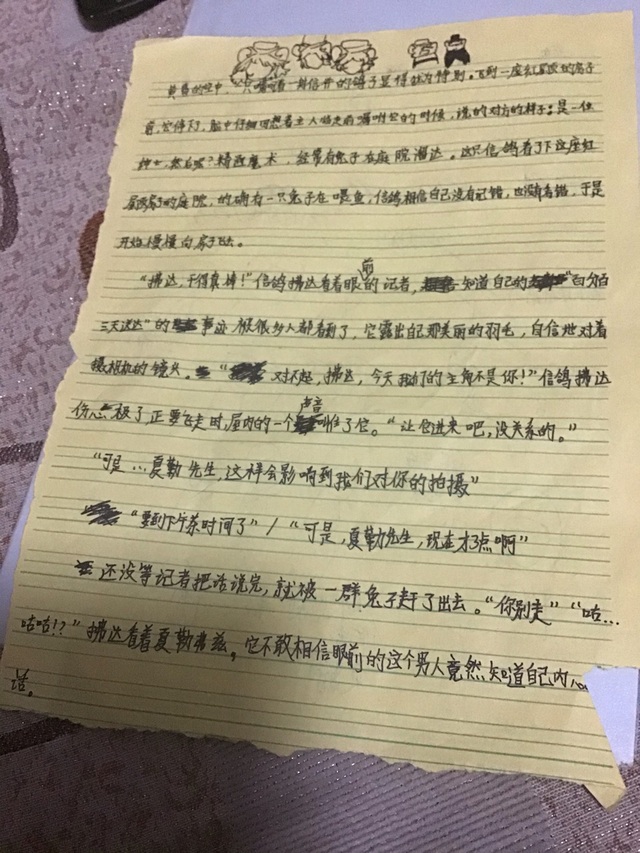 黄昏的空中，一只嘴叼着一封信件的鸽子显得尤为特别。飞到一座红屋顶的房子
前，它停下，脑中仔细回想着主人临走前嘱咐它的时候，说的对方的样子：是一位
绅士，然后呢？精通魔术，经常有兔子在庭院溜达。这只信鸽看了下这座红
屋顶房子的庭院，的确有一只兔子在喂鱼，信鸽相信自己没有记错，也没有看错，于是
开始慢慢向房子飞去。
“携达，干得真棒！”信鸽携达看着眼前的记者，知道自己的“百分百
三天送达”的事迹被很多人都看到了，它露出自己那美丽的羽毛，自信地对着
摄相机的镜头。“对不起，携达，今天我们的主角不是你！”信鸽携达
伤心极了，正要飞走时，屋内的一个声音叫住了它。“让它进来吧，没关系的。”
“可是…夏勒先生，这样会影响到我们对你的拍摄”
“要到下午茶时间了”/“可是，夏勒先生，现在才3点啊”
还没等记者把话说完，就被一群兔子赶了出去。“你别走”“咕…
咕咕！？”携达看着夏勒弗兹，它不敢相信眼前的这个男人竟然知道自己内心
话。